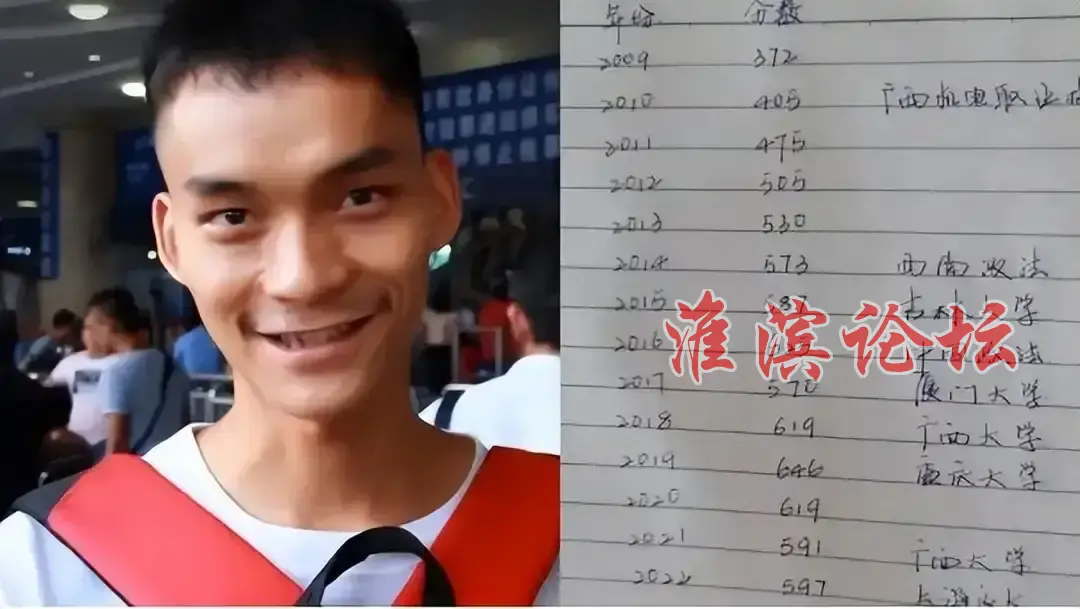 年份 分数
2009 372
2010 405 广西机电职业
2011 475
2012 505
2013 530
2014 573 西南政法
2015 587 吉林大学
2016 中国政法
2017 570 厦门大学
2018 619 广西大学
2019 646 重庆大学
2020 619
2021 591 广西大学
2022 597 上海
淮滨论坛